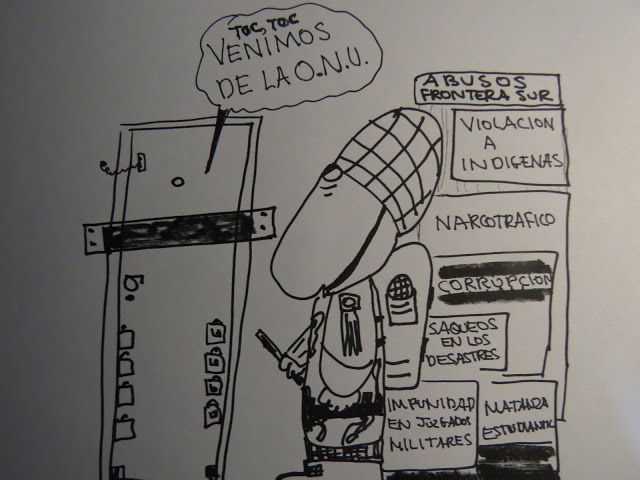 TOC, TOC
VENIMOS
DE LA O.N.U.
ABUSOS
FRONTERA SUR
VIOLACION
A
INDIGENAS
NARCOTRAFICO
CORRUPCION
SAQUEOS
EN LOS
DESASTRES
IMPUNIDAD
EN JUZGADOS
MILITARES
MATANZA